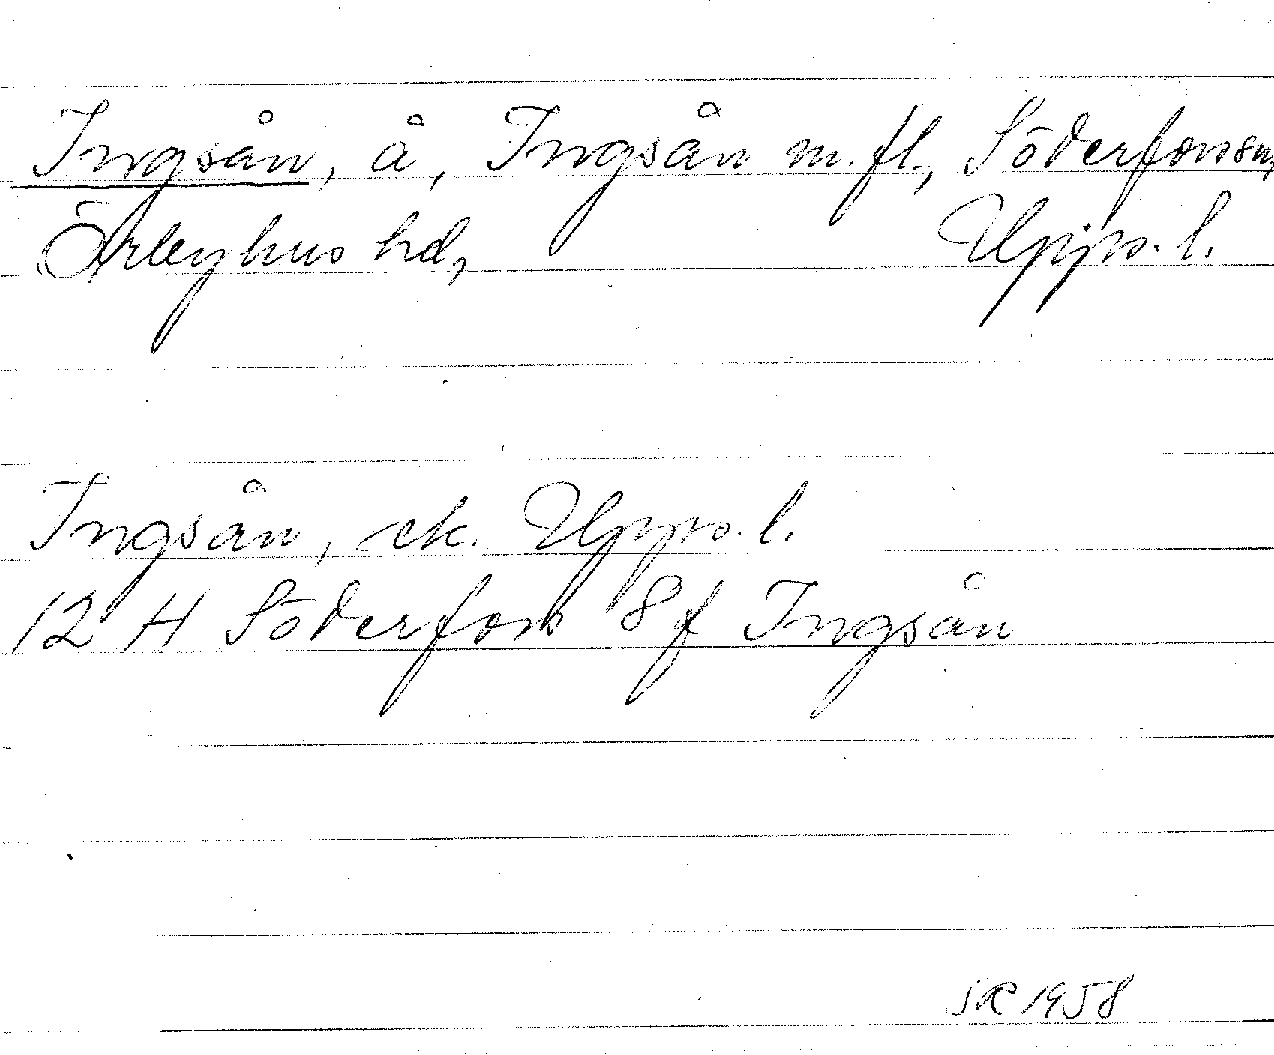 Ingsån, å, Ingsån m.fl., Söderfors sn,
Örbyhus hd, Upps. l.
Ingsån, ek. Upps. l.
12 H Söderfors 8f Ingsån
JK 1958